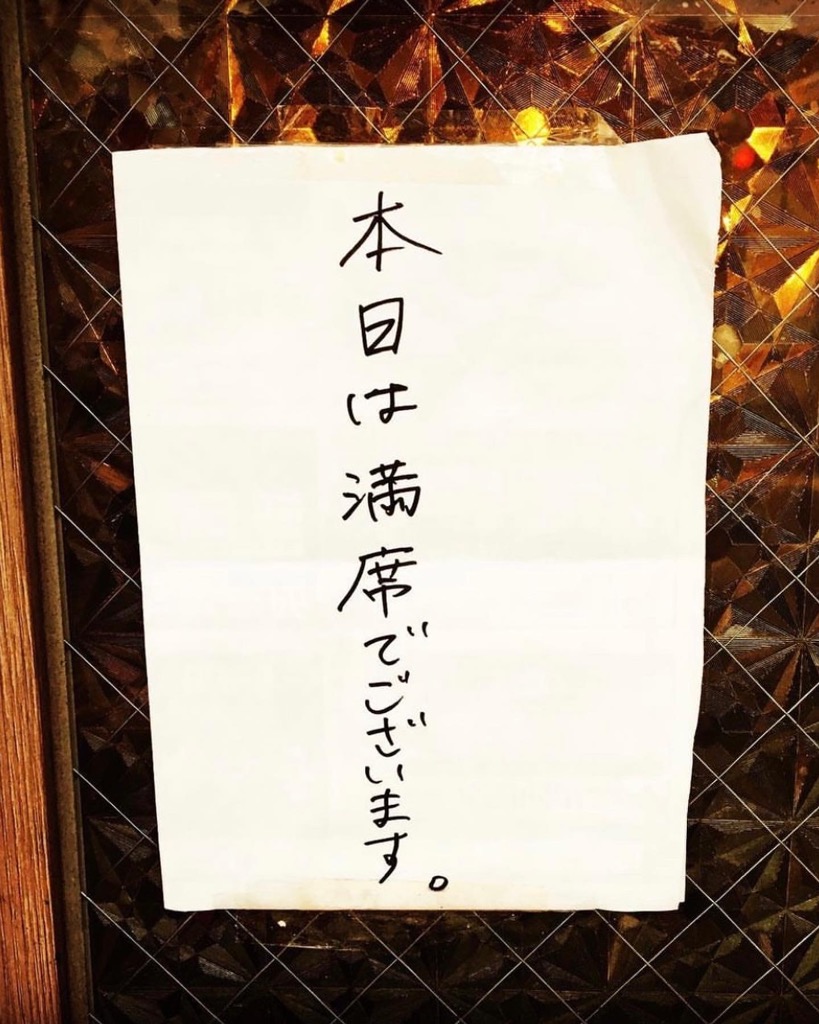 本日は満席でございます。